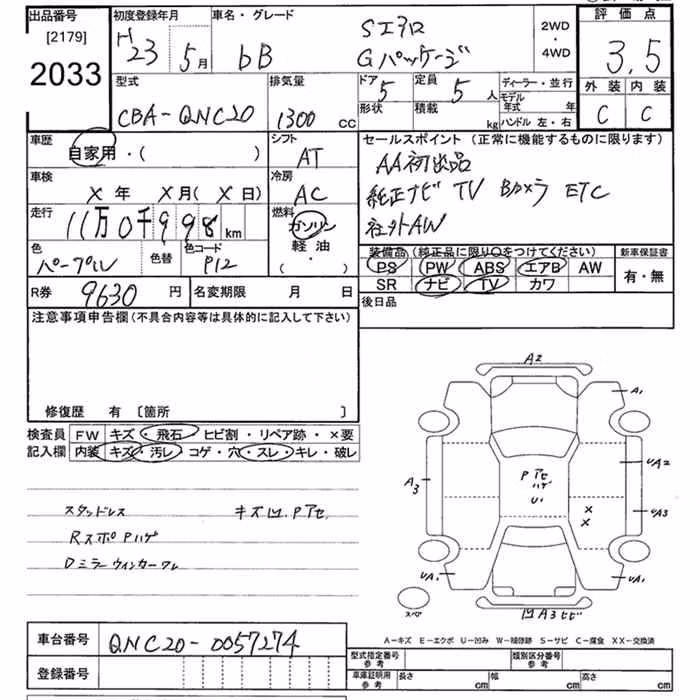 出品番号 初度登録年月 車名・グレード 評価点
[2179] H 23年 5月 bB Sエアロ Gパッケージ 2WD・4WD 3.5
2033 外装 内装
型式 排気量 ドア 5 定員 5人 ディーラー・並行
CBA-QNC20 1300cc 形状 積載 kg モデル年式 年 C C
ハンドル 左・右
車歴 シフト セールスポイント (正常に機能するものに限ります)
自家用・( ) AT AA初出品
車検 冷房 純正ナビ TV Bカメラ ETC
X年 X月(X日) AC 社外AW
走行 燃料
11万0千998km ガソリン
色 色替 色コード 軽油 装備品(純正品に限り○をつけてください) 新車保証書
パープル P12 ( ・ ) PS PW ABS エアB AW 有・無
R券 9630円 名変期限 月 日 SR ナビ TV カワ
注意事項申告欄(不具合内容等は具体的に記入して下さい) 後日品
修復歴 有 [箇所 ]
検査員 FW キズ・飛石・ヒビ割・リペア跡・×要
記入欄 内装 キズ・汚レ・コゲ・穴・スレ・キレ・破レ
スタッドレス キズ凹.Pアセ
RスポPハゲ
Dミラーウィンカーワレ
A2
A1
A3 Pアセ UA2
ハゲ
U1 × UA3
×
UA2 UA1
スペア 凹A3ヒビ
A-キズ E-エクボ U-凹み W-補修跡 S-サビ C-腐食 XX-交換済
車台番号 QNC20-0057274
型式指定番号 参考 類別区分番号 参考
登録番号 車庫証明用 参考 長さ cm 幅 cm 高さ cm